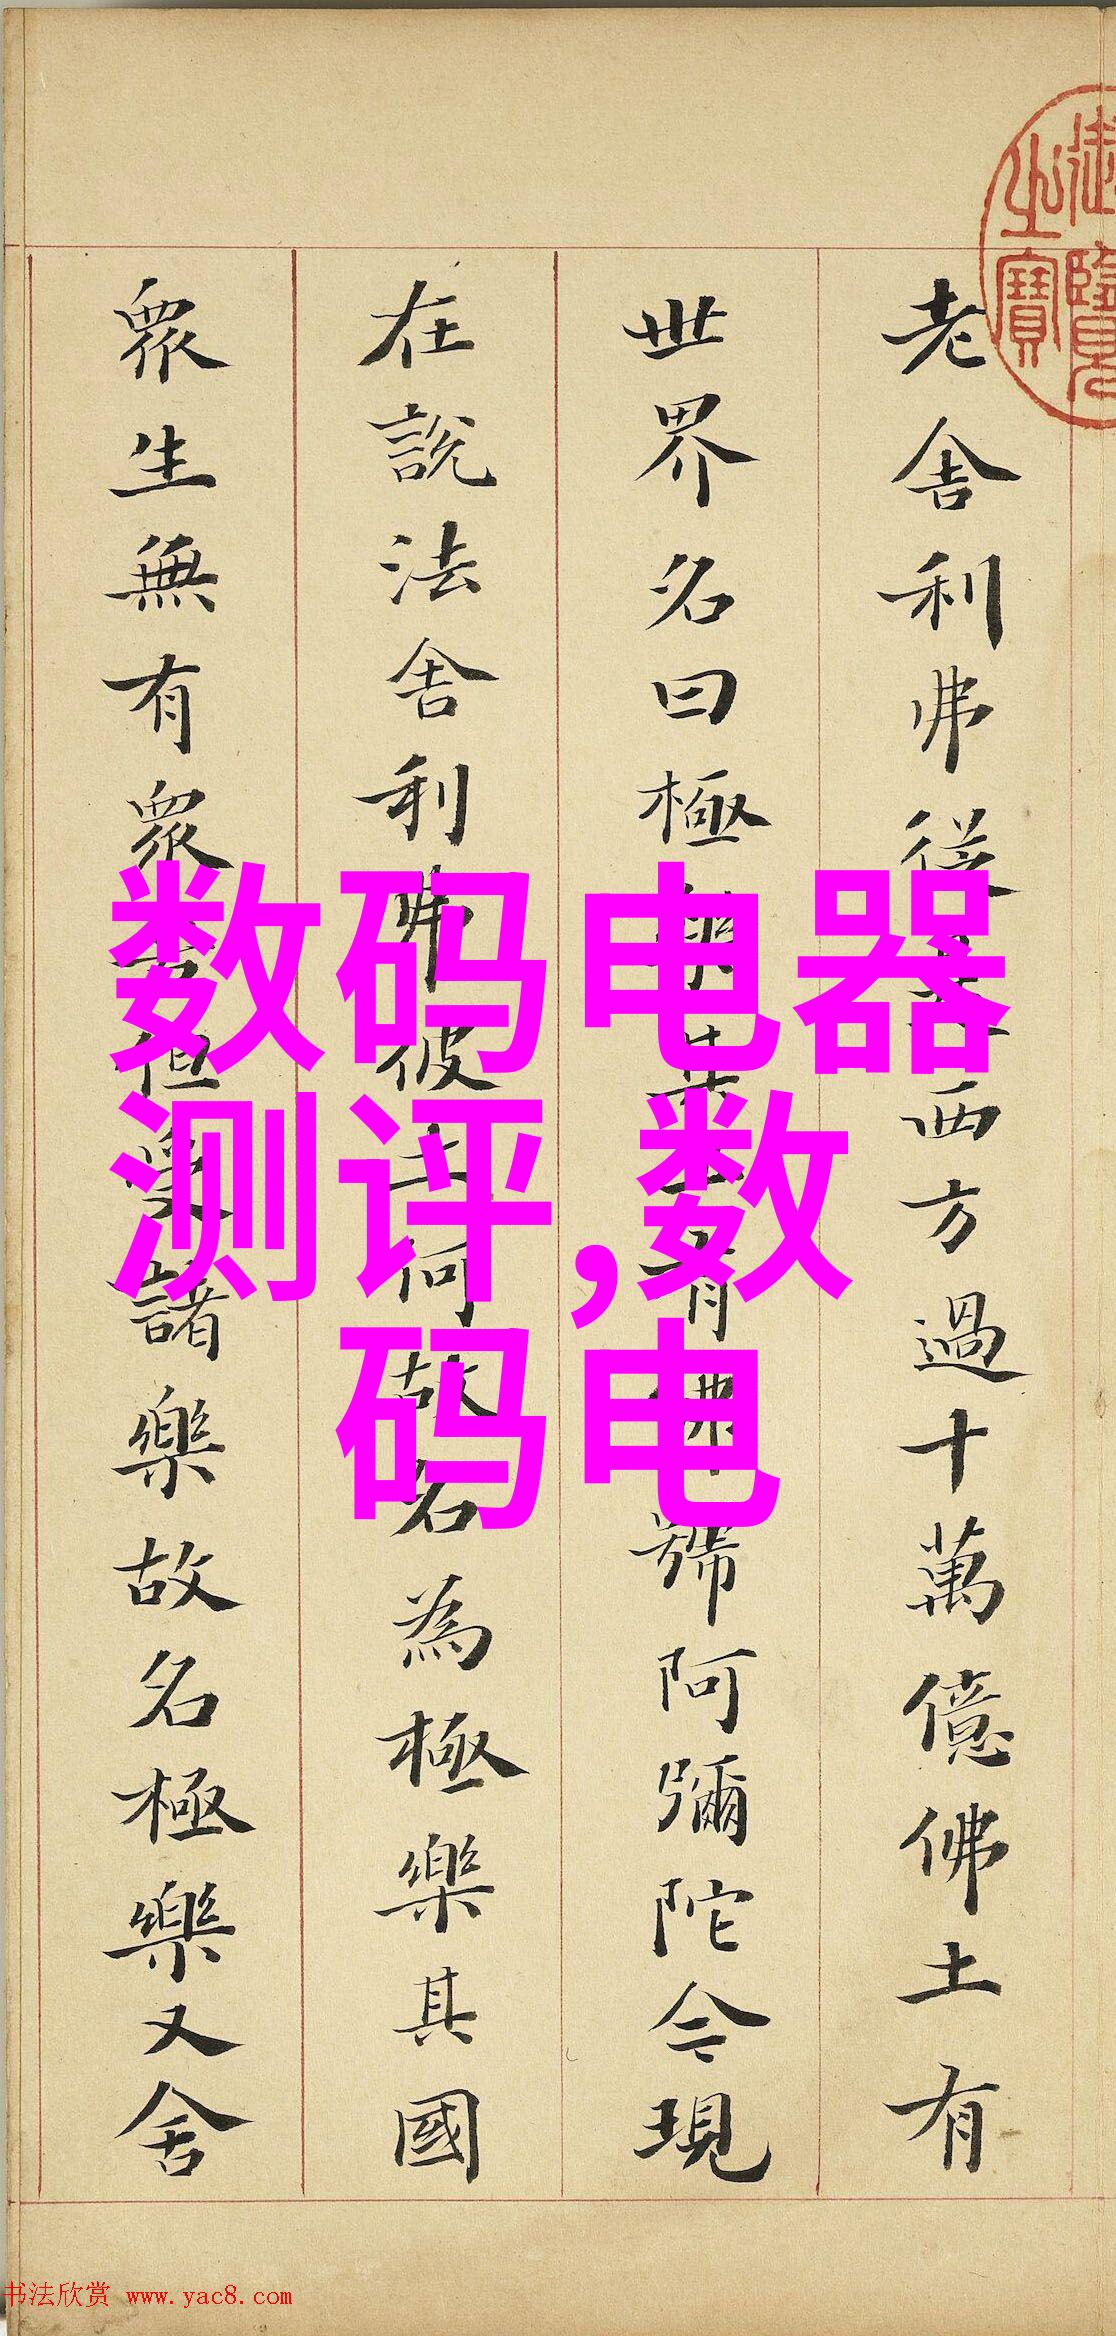 御覽
之寶
老舍利弗從是西方過十萬億佛土有
世界名曰極樂其土有佛號阿彌陀今現
在說法舍利弗彼土何故名為極樂其國
眾生無有眾苦但受諸樂故名極樂又舍
数码电器
测评,数
码电
书法欣赏 www.yac8.com